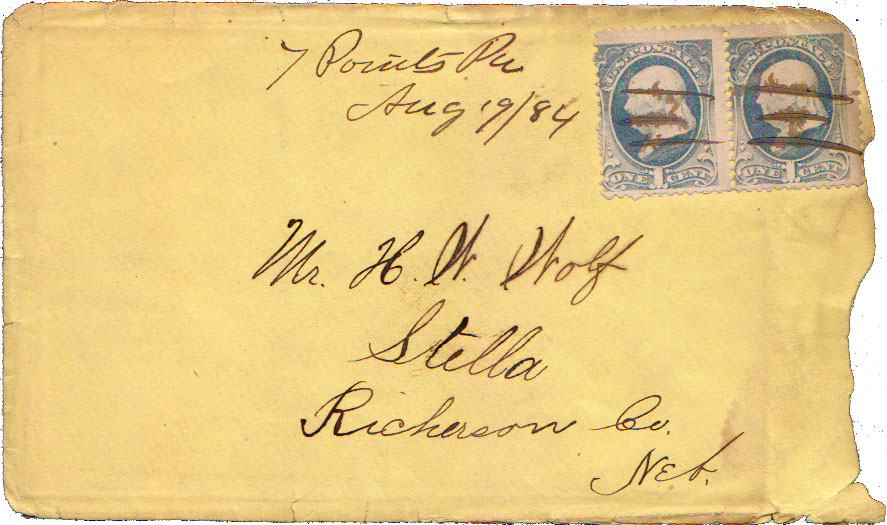 7 Points Pa
Aug 19/84
U.S. POSTAGE
U.S. POSTAGE
ONE 1 CENT
ONE 1 CENT
Mr. H. W. Wolf
Stella
Richerson Co.
Neb.